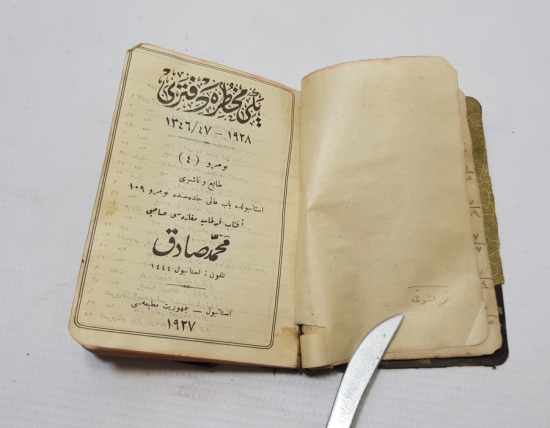 يكى مخطره دفترى
١٣٤٦/٤٧ – ١٩٢٨
نومرو (٤)
طابع و ناشرى
استانبولده باب عالى جاده‌سنده نومرو ١٠٩
آفتاب قرطاسيه مغازه‌سى صاحبى
محمد صادق
تلفون : استانبول ١٤٤٤
استانبول — جمهوريت مطبعه‌سى
١٩٢٧